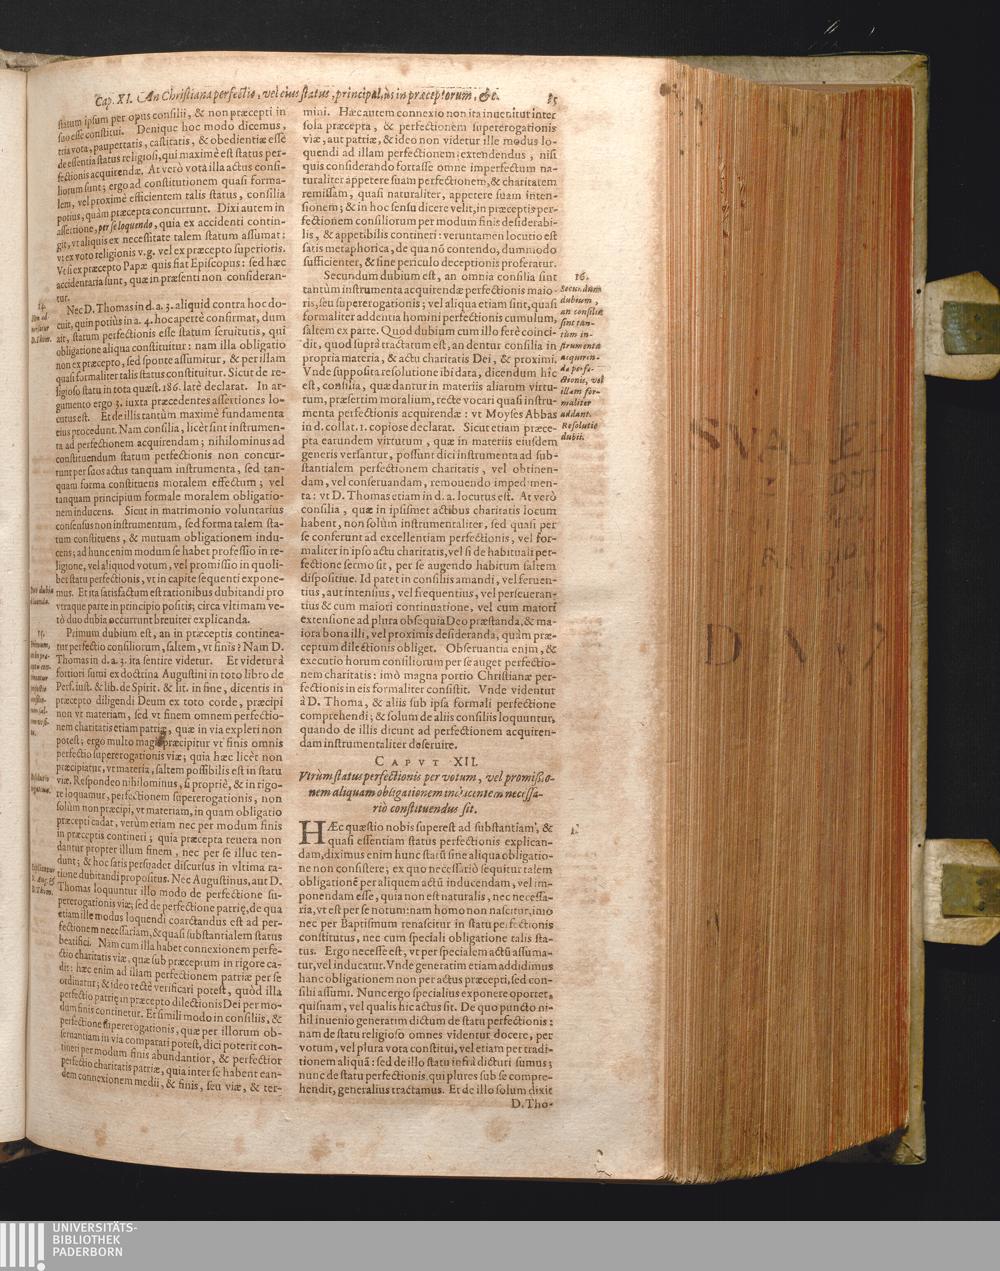 Cap. XI. An Christiana perfectio, vel eius status, principalius in præceptorum, &c. 85
statum ipsum per opus consilii, & non præcepti in
suo esse constitui. Denique hoc modo dicemus,
tria vota, paupertatis, castitatis, & obedientiæ esse
de essentia status religiosi, qui maximè est status per-
fectionis acquirendæ. At verò vota illa actus consi-
liorum sunt; ergo ad constitutionem quasi forma-
lem, vel proximè efficientem talis status, consilia
potius, quàm præcepta concurrunt. Dixi autem in
assertione, per se loquendo, quia ex accidenti contin-
git, vt aliquis ex necessitate talem statum assumat:
vt ex voto religionis v.g. vel ex præcepto superioris.
Vt si ex præcepto Papæ quis fiat Episcopus: sed hæc
accidentaria sunt, quæ in præsenti non consideran-
tur.
14.
Nec D. Thomas in d. a. 3. aliquid contra hoc do-
cuit, quin potiùs in a. 4. hoc apertè confirmat, dum
D. Thom.
ait, statum perfectionis esse statum seruitutis, qui
obligatione aliqua constituitur: nam illa obligatio
non ex præcepto, sed sponte assumitur, & per illam
quasi formaliter talis status constituitur. Sicut de re-
ligioso statu in tota quæst. 186. latè declarat. In ar-
gumento ergo 3. iuxta præcedentes assertiones lo-
cutus est. Et de illis tantùm maximè fundamenta
eius procedunt. Nam consilia, licèt sint instrumen-
ta ad perfectionem acquirendam; nihilominus ad
constituendum statum perfectionis non concur-
runt per suos actus tanquam instrumenta, sed tan-
quam forma constituens moralem effectum; vel
tanquam principium formale moralem obligatio-
nem inducens. Sicut in matrimonio voluntarius
consensus non instrumentum, sed forma talem sta-
tum constituens, & mutuam obligationem indu-
cens; ad hunc enim modum se habet professio in re-
ligione, vel aliquod votum, vel promissio in quoli-
bet statu perfectionis, vt in capite sequenti expone-
Duo dubia
mus. Et ita satisfactum est rationibus dubitandi pro
vtraque parte in principio positis; circa vltimam ve-
rò duo dubia occurrunt breuiter explicanda.
15.
Primum dubium est, an in præceptis continea-
tur perfectio consiliorum, saltem, vt finis? Nam D.
Thomas in d. a. 3. ita sentire videtur. Et videtur à
fortiori sumi ex doctrina Augustini in toto libro de
Perf. iust. & lib. de Spirit. & lit. in fine, dicentis in
præcepto diligendi Deum ex toto corde, præcipi
non vt materiam, sed vt finem omnem perfectio-
nem charitatis etiam patriæ, quæ in via expleri non
potest; ergo multo magis præcipitur vt finis omnis
perfectio supererogationis viæ; quia hæc licèt non
præcipiatur, vt materia, saltem possibilis est in statu
viæ. Respondeo nihilominus, si propriè, & in rigo-
re loquamur, perfectionem supererogationis, non
solùm non præcipi, vt materiam, in quam obligatio
præcepti cadat, verùm etiam nec per modum finis
in præceptis contineri; quia præcepta reuera non
dantur propter illum finem, nec per se illuc ten-
dunt; & hoc satis persuadet discursus in vltima ra-
tione dubitandi propositus. Nec Augustinus, aut D.
Thomas loquuntur illo modo de perfectione su-
pererogationis viæ; sed de perfectione patriæ, de qua
etiam ille modus loquendi coarctandus est ad per-
fectionem necessariam, & quasi substantialem status
beatifici. Nam cum illa habet connexionem perfe-
ctio charitatis viæ, quæ sub præceptum in rigore ca-
dit: hæc enim ad illam perfectionem patriæ per se
ordinatur; & ideo rectè verificari potest, quòd illa
perfectio patriæ in præcepto dilectionis Dei per mo-
dum finis continetur. Et simili modo in consiliis, &
perfectione supererogationis, quæ per illorum ob-
seruantiam in via comparari potest, dici poterit con-
tineri per modum finis abundantior, & perfectior
perfectio charitatis patriæ, quia inter se habent ean-
dem connexionem medii, & finis, seu viæ, & ter-
mini. Hæc autem connexio non ita inuenitur inter
sola præcepta, & perfectionem supererogationis
viæ, aut patriæ, & ideo non videtur ille modus lo-
quendi ad illam perfectionem extendendus, nisi
quis considerando fortasse omne imperfectum na-
turaliter appetere suam perfectionem, & charitatem
remissam, quasi naturaliter, appetere suam inten-
sionem; & in hoc sensu dicere velit, in præceptis per-
fectionem consiliorum per modum finis desiderabi-
lis, & appetibilis contineri: veruntamen locutio est
satis metaphorica, de qua nõ contendo, dummodo
sufficienter, & sine periculo deceptionis proferatur.
16.
Secundum dubium est, an omnia consilia sint
Secundum dubium, an consilia sint tan-
tùm in-
strumenta acquiren-
dæ perfe-
ctionis, vel illam for-
maliter addant.
tantùm instrumenta acquirendæ perfectionis maio-
ris, seu supererogationis; vel aliqua etiam sint, quasi
formaliter addentia homini perfectionis cumulum,
saltem ex parte. Quod dubium cum illo ferè coinci-
dit, quod suprà tractatum est, an dentur consilia in
propria materia, & actu charitatis Dei, & proximi.
Vnde supposita resolutione ibi data, dicendum hîc
est, consilia, quæ dantur in materiis aliarum virtu-
tum, præsertim moralium, rectè vocari quasi instru-
menta perfectionis acquirendæ: vt Moyses Abbas
Resolutio dubii.
in d. collat. 1. copiose declarat. Sicut etiam præce-
pta earundem virtutum, quæ in materiis eiusdem
generis versantur, possunt dici instrumenta ad sub-
stantialem perfectionem charitatis, vel obtinen-
dam, vel conseruandam, remouendo impedimen-
ta: vt D. Thomas etiam in d. a. locutus est. At verò
consilia, quæ in ipsismet actibus charitatis locum
habent, non solùm instrumentaliter, sed quasi per
se conferunt ad excellentiam perfectionis, vel for-
maliter in ipso actu charitatis, vel si de habituali per-
fectione sermo sit, per se augendo habitum saltem
dispositiue. Id patet in consiliis amandi, vel feruen-
tius, aut intensius, vel frequentius, vel perseueran-
tius & cum maiori continuatione, vel cum maiori
extensione ad plura obsequia Deo præstanda, & ma-
iora bona illi, vel proximis desideranda, quàm præ-
ceptum dilectionis obliget. Obseruantia enim, &
executio horum consiliorum per se auget perfectio-
nem charitatis: imò magna portio Christianæ per-
fectionis in eis formaliter consistit. Vnde videntur
à D. Thoma, & aliis sub ipsa formali perfectione
comprehendi; & solum de aliis consiliis loquuntur,
quando de illis dicunt ad perfectionem acquiren-
dam instrumentaliter deseruire.
CAPVT XII.
Vtrùm status perfectionis per votum, vel promissio-
nem aliquam obligationem inducentem necessa-
riò constituendus sit.
1.
HÆc quæstio nobis superest ad substantiam, &
quasi essentiam status perfectionis explican-
dam, diximus enim hunc statũ sine aliqua obligatio-
ne non consistere; ex quo necessariò sequitur talem
obligationẽ per aliquem actũ inducendam, vel im-
ponendam esse, quia non est naturalis, nec necessa-
ria, vt est per se notum: nam homo non nascitur, imo
nec per Baptismum renascitur in statu perfectionis
constitutus, nec cum speciali obligatione talis sta-
tus. Ergo necesse est, vt per specialem actũ assuma-
tur, vel inducatur. Vnde generatim etiam addidimus
hanc obligationem non per actus præcepti, sed con-
silii assumi. Nunc ergo specialius exponere oportet,
quisnam, vel qualis hic actus sit. De quo puncto ni-
hil inuenio generatim dictum de statu perfectionis:
nam de statu religioso omnes videntur docere, per
votum, vel plura vota constitui, vel etiam per tradi-
tionem aliquã: sed de illo statu infrà dicturi sumus;
nunc de statu perfectionis, qui plures sub se compre-
hendit, generalius tractamus. Et de illo solum dixit
D. Tho-
UNIVERSITÄTS-
BIBLIOTHEK
PADERBORN